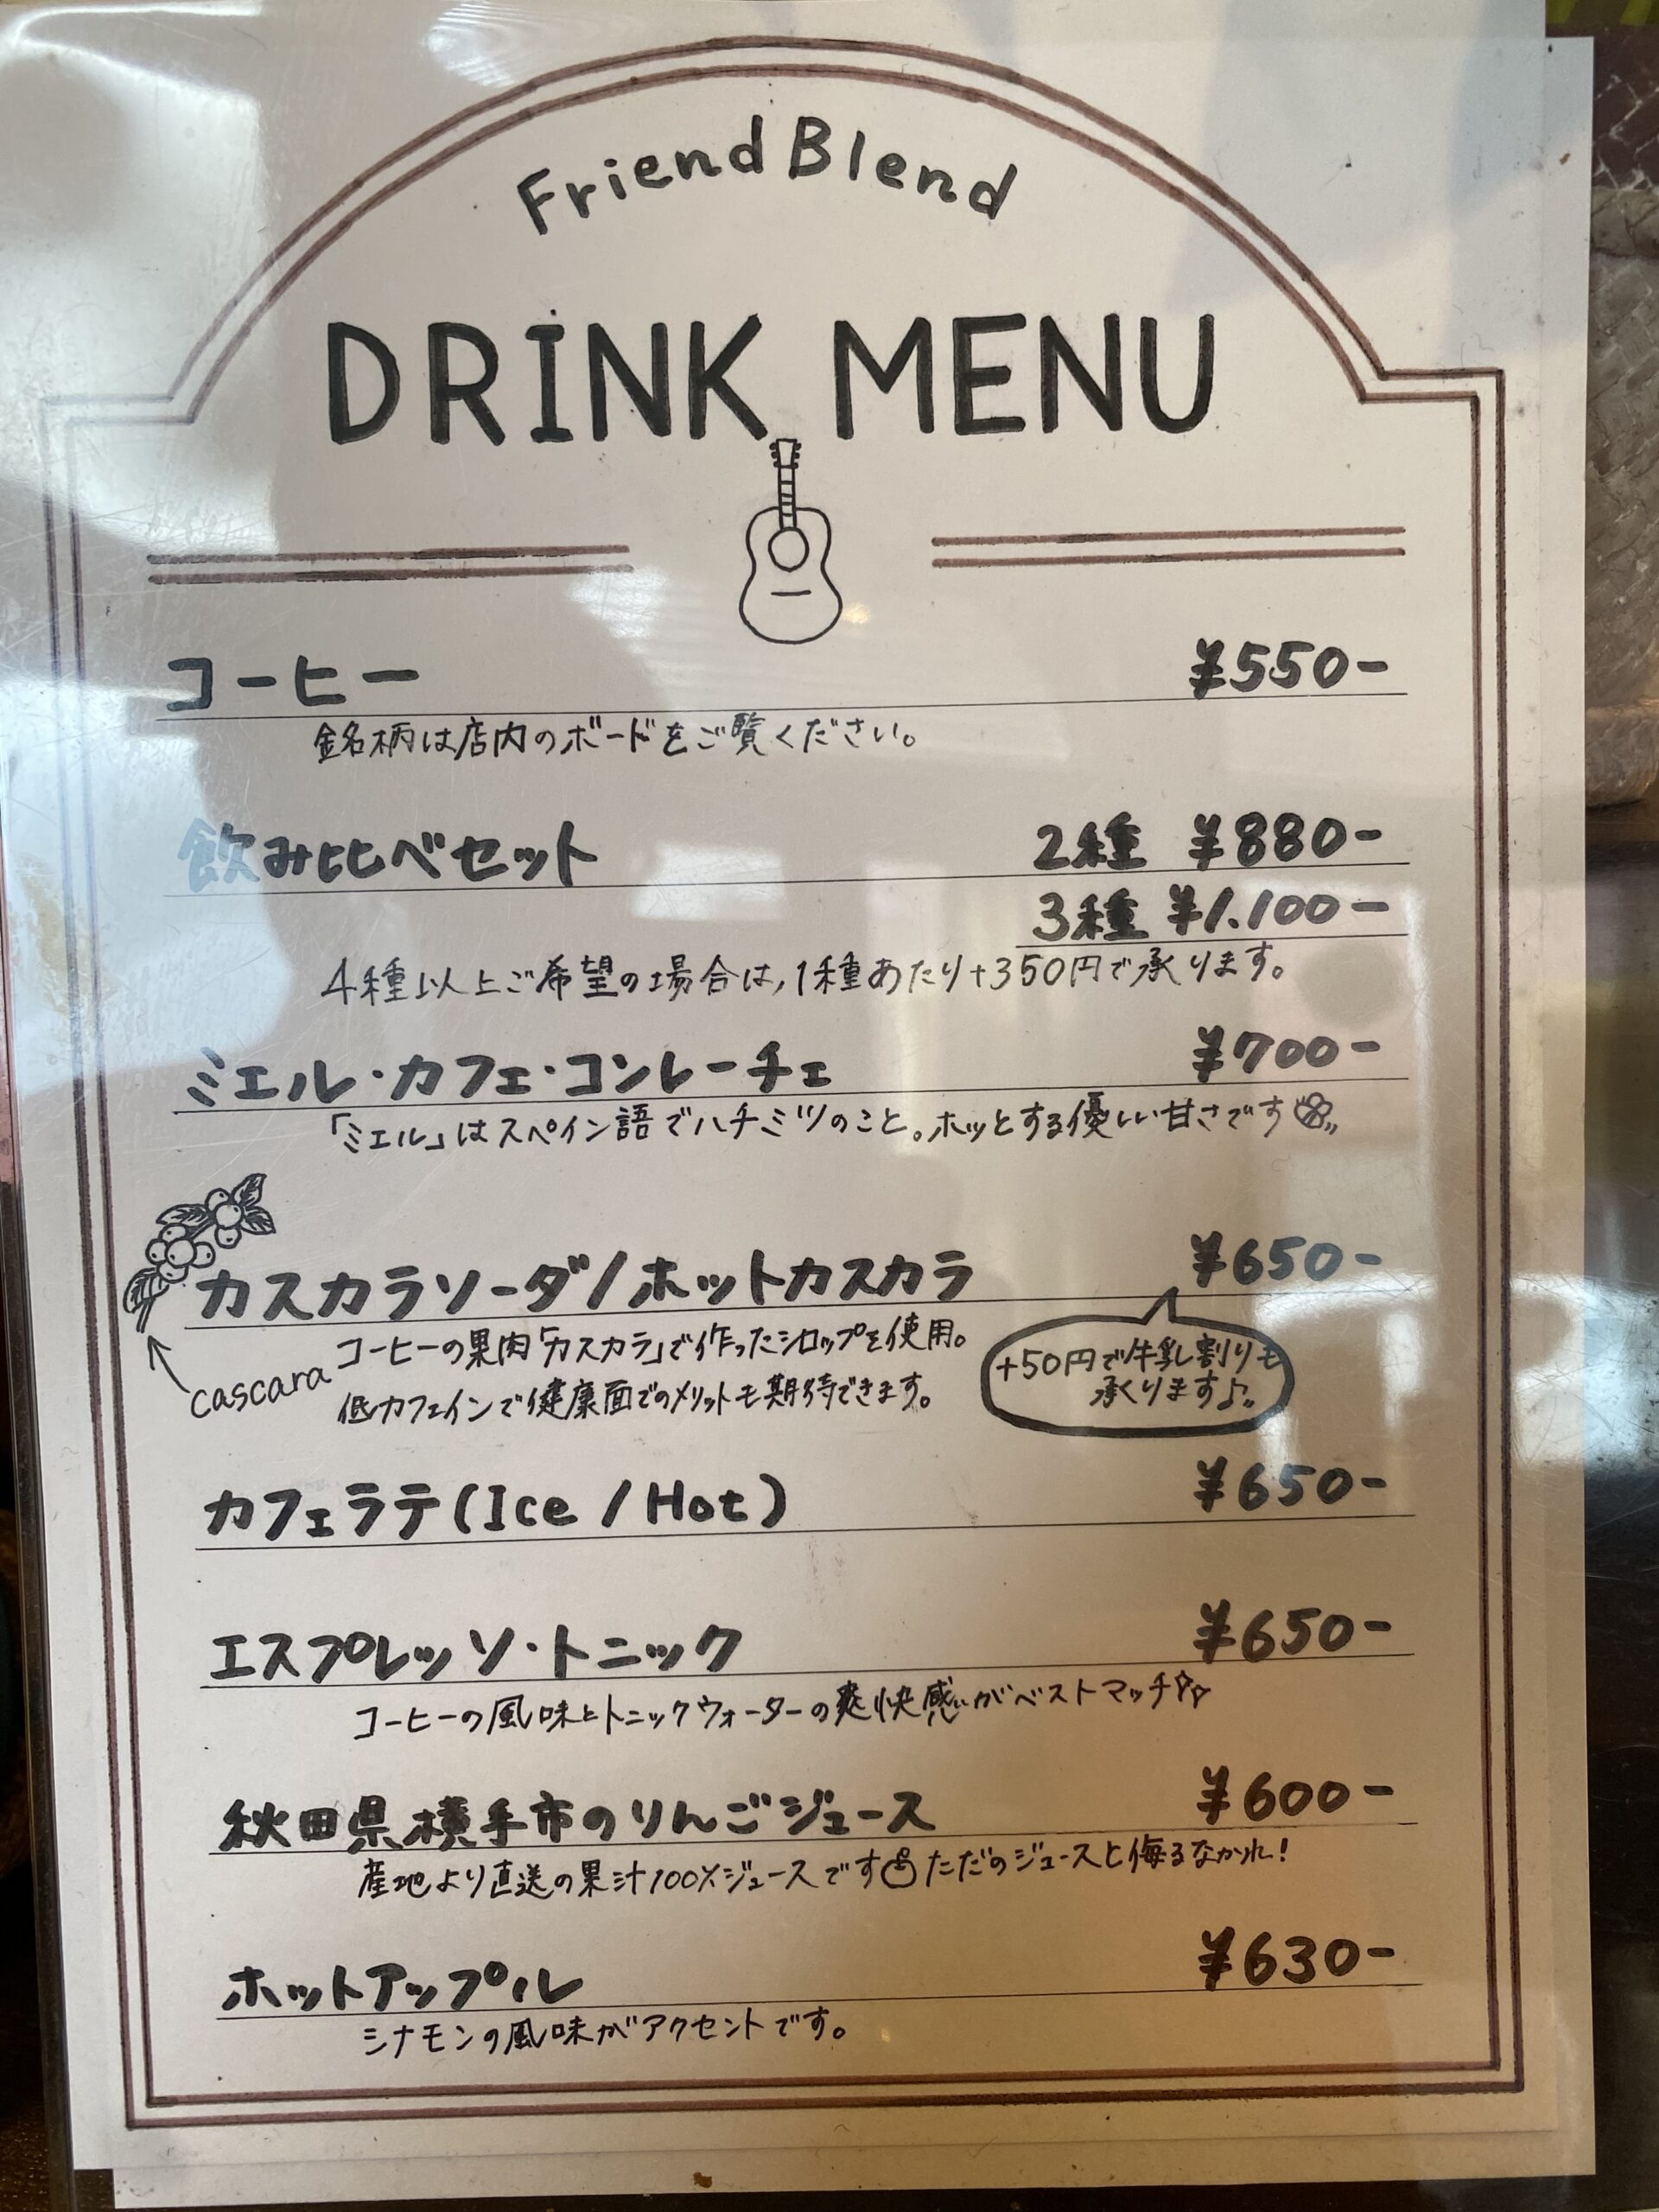 Friend Blend
DRINK MENU
コーヒー ¥550-
銘柄は店内のボードをご覧ください。
飲み比べセット 2種 ¥880-
3種 ¥1.100-
4種以上ご希望の場合は,1種あたり+350円で承ります。
ミエル・カフェ・コンレーチェ ¥700-
「ミエル」はスペイン語でハチミツのこと。ホッとする優しい甘さです
カスカラソーダ/ホットカスカラ ¥650-
コーヒーの果肉「カスカラ」で作ったシロップを使用。
低カフェインで健康面でのメリットも期待できます。
cascara
+50円で牛乳割りも
承くります♪
カフェラテ(Ice/Hot) ¥650-
エスプレッソ・トニック ¥650-
コーヒーの風味とトニックウォーターの爽快感がベストマッチ
秋田県横手市のりんごジュース ¥600-
産地より直送の果汁100%ジュースです ただのジュースと侮るなかれ!
ホットアップル ¥630-
シナモンの風味がアクセントです。